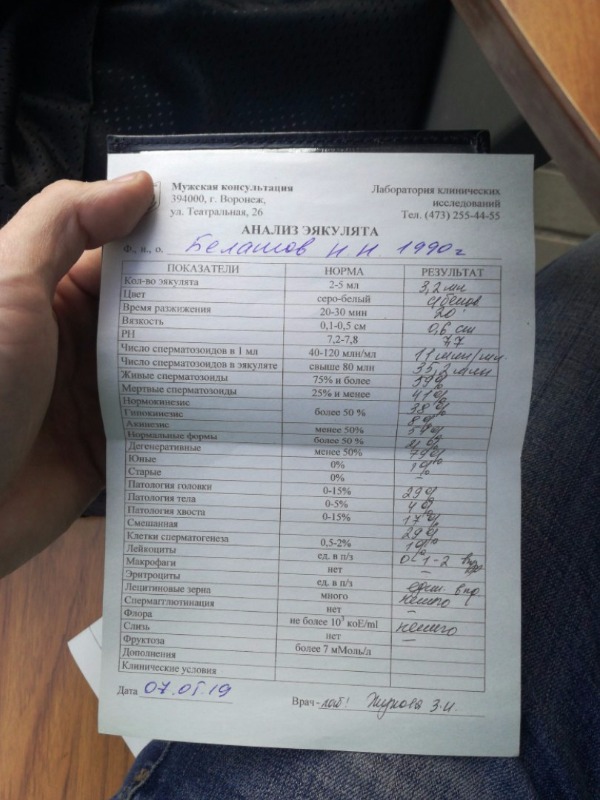 Мужская консультация
394000, г. Воронеж,
ул. Театральная, 26
Лаборатория клинических
исследований
Тел. (473) 255-44-55
АНАЛИЗ ЭЯКУЛЯТА
Ф., и., о. Белашов Н Н 1990г
ПОКАЗАТЕЛИ НОРМА РЕЗУЛЬТАТ
Кол-во эякулята 2-5 мл 3,2 мл
Цвет серо-белый
Время разжижения 20-30 мин 20'
Вязкость 0,1-0,5 см 0,6 см
PH 7,2-7,8 77
Число сперматозоидов в 1 мл 40-120 млн/мл 11 млн/мл
Число сперматозоидов в эякуляте свыше 80 млн 35,2 млн
Живые сперматозоиды 75% и более 59%
Мертвые сперматозоиды 25% и менее 41%
Нормокинезис более 50 % 38%
Гипокинезис
Акинезис менее 50%
Нормальные формы более 50 % 21%
Дегенеративные менее 50% 79%
Юные 0% 1%
Старые 0% –
Патология головки 0-15% 29%
Патология тела 0-5% 4%
Патология хвоста 0-15% 17%
Смешанная 29%
Клетки сперматогенеза 0,5-2% 1%
Лейкоциты ед. в п/з 0-1-2
Макрофаги нет –
Эритроциты ед. в п/з
Лецитиновые зерна много немного
Спермагглютинация нет –
Флора не более 10³ коЕ/ml немного
Слизь нет
Фруктоза более 7 мМоль/л
Дополнения
Клинические условия
Дата 07.05.19
Врач-лаб! Жукова З.И.